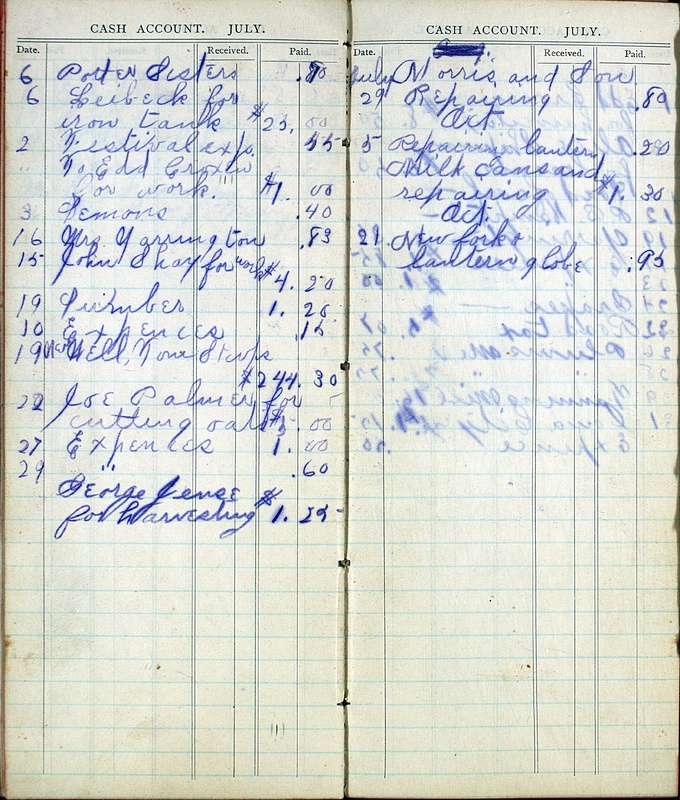 CASH ACCOUNT. JULY.
Date. Received. Paid.
6 Porter Sisters .80
6 Leibeck for
iron tank $25.00
2 Festival exp. 55
" To Edd
for work. $1.00
3 Lemons .40
16 Mrs Yarrington .83
15 John Shay for work $4.20
19 1.25
10 Expences .15
19 Well,
$244.30
22 Joe Palmer for
cutting oats .00
27 Expences 1.00
29 " .60
George Jense
for harvesting $1.25
CASH ACCOUNT. JULY.
Date. Received. Paid.
July Morris and Son
29 Repairing .89
Act
5 Repairing lantern .20
Milk Cans and
repairing $1.30
Act.
21 New forks
lantern globe .95